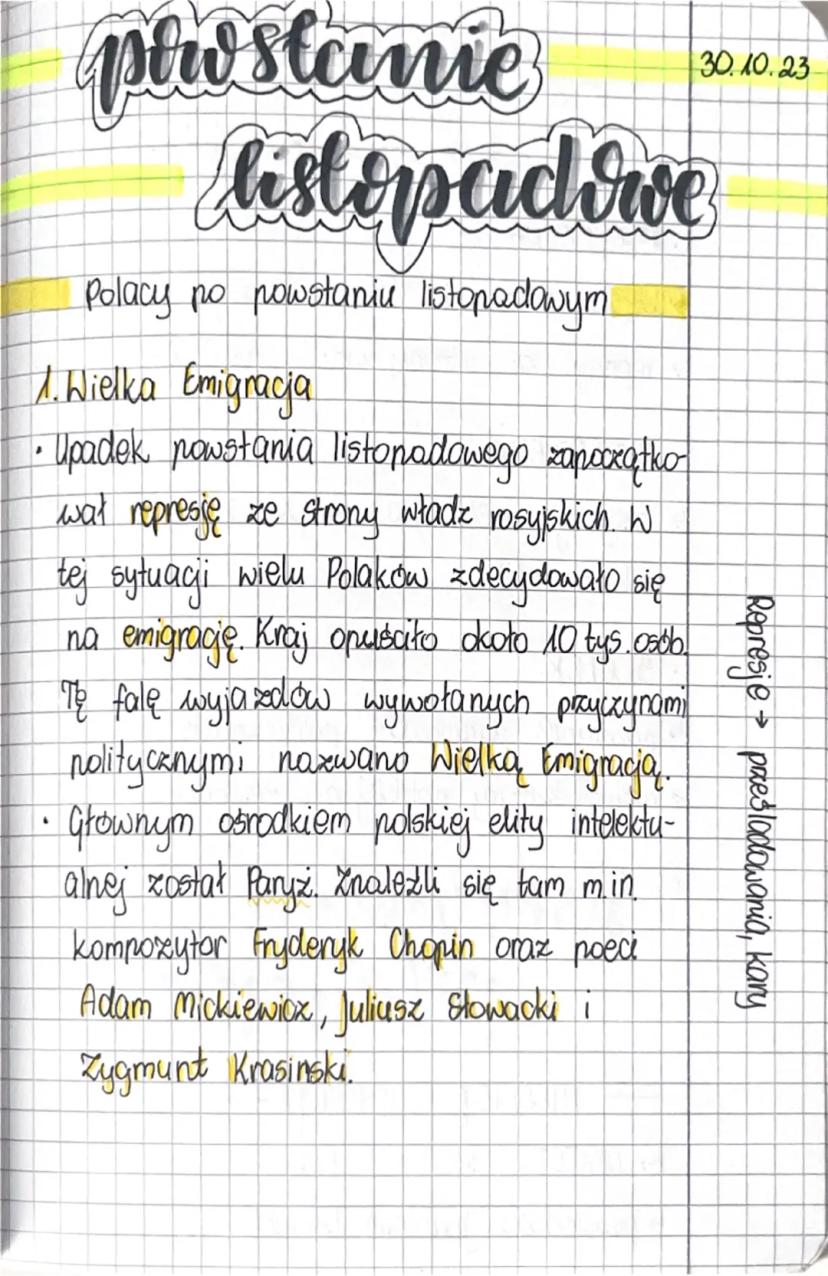 powstanie
30.10.23
listopadowe
Polacy po powstaniu listopadowym
1. Wielka Emigracja
• Upadek powstania listopadowego zapoczątko-
wał represję ze strony władz rosyjskich. W
tej sytuacji wielu Polaków zdecydowało się
na emigrację. Kraj opuściło około 10 tys. osób.
Tę falę wyjazdów wywołanych przyczynami
politycznymi nazwano Wielką Emigracją.
• Głównym ośrodkiem polskiej elity intelektu-
alnej został Paryż. Znaleźli się tam m.in.
kompozytor Fryderyk Chopin oraz poeci
Adam Mickiewicz, Juliusz Słowacki i
Zygmunt Krasinski.
Represje → prześladowania, kary